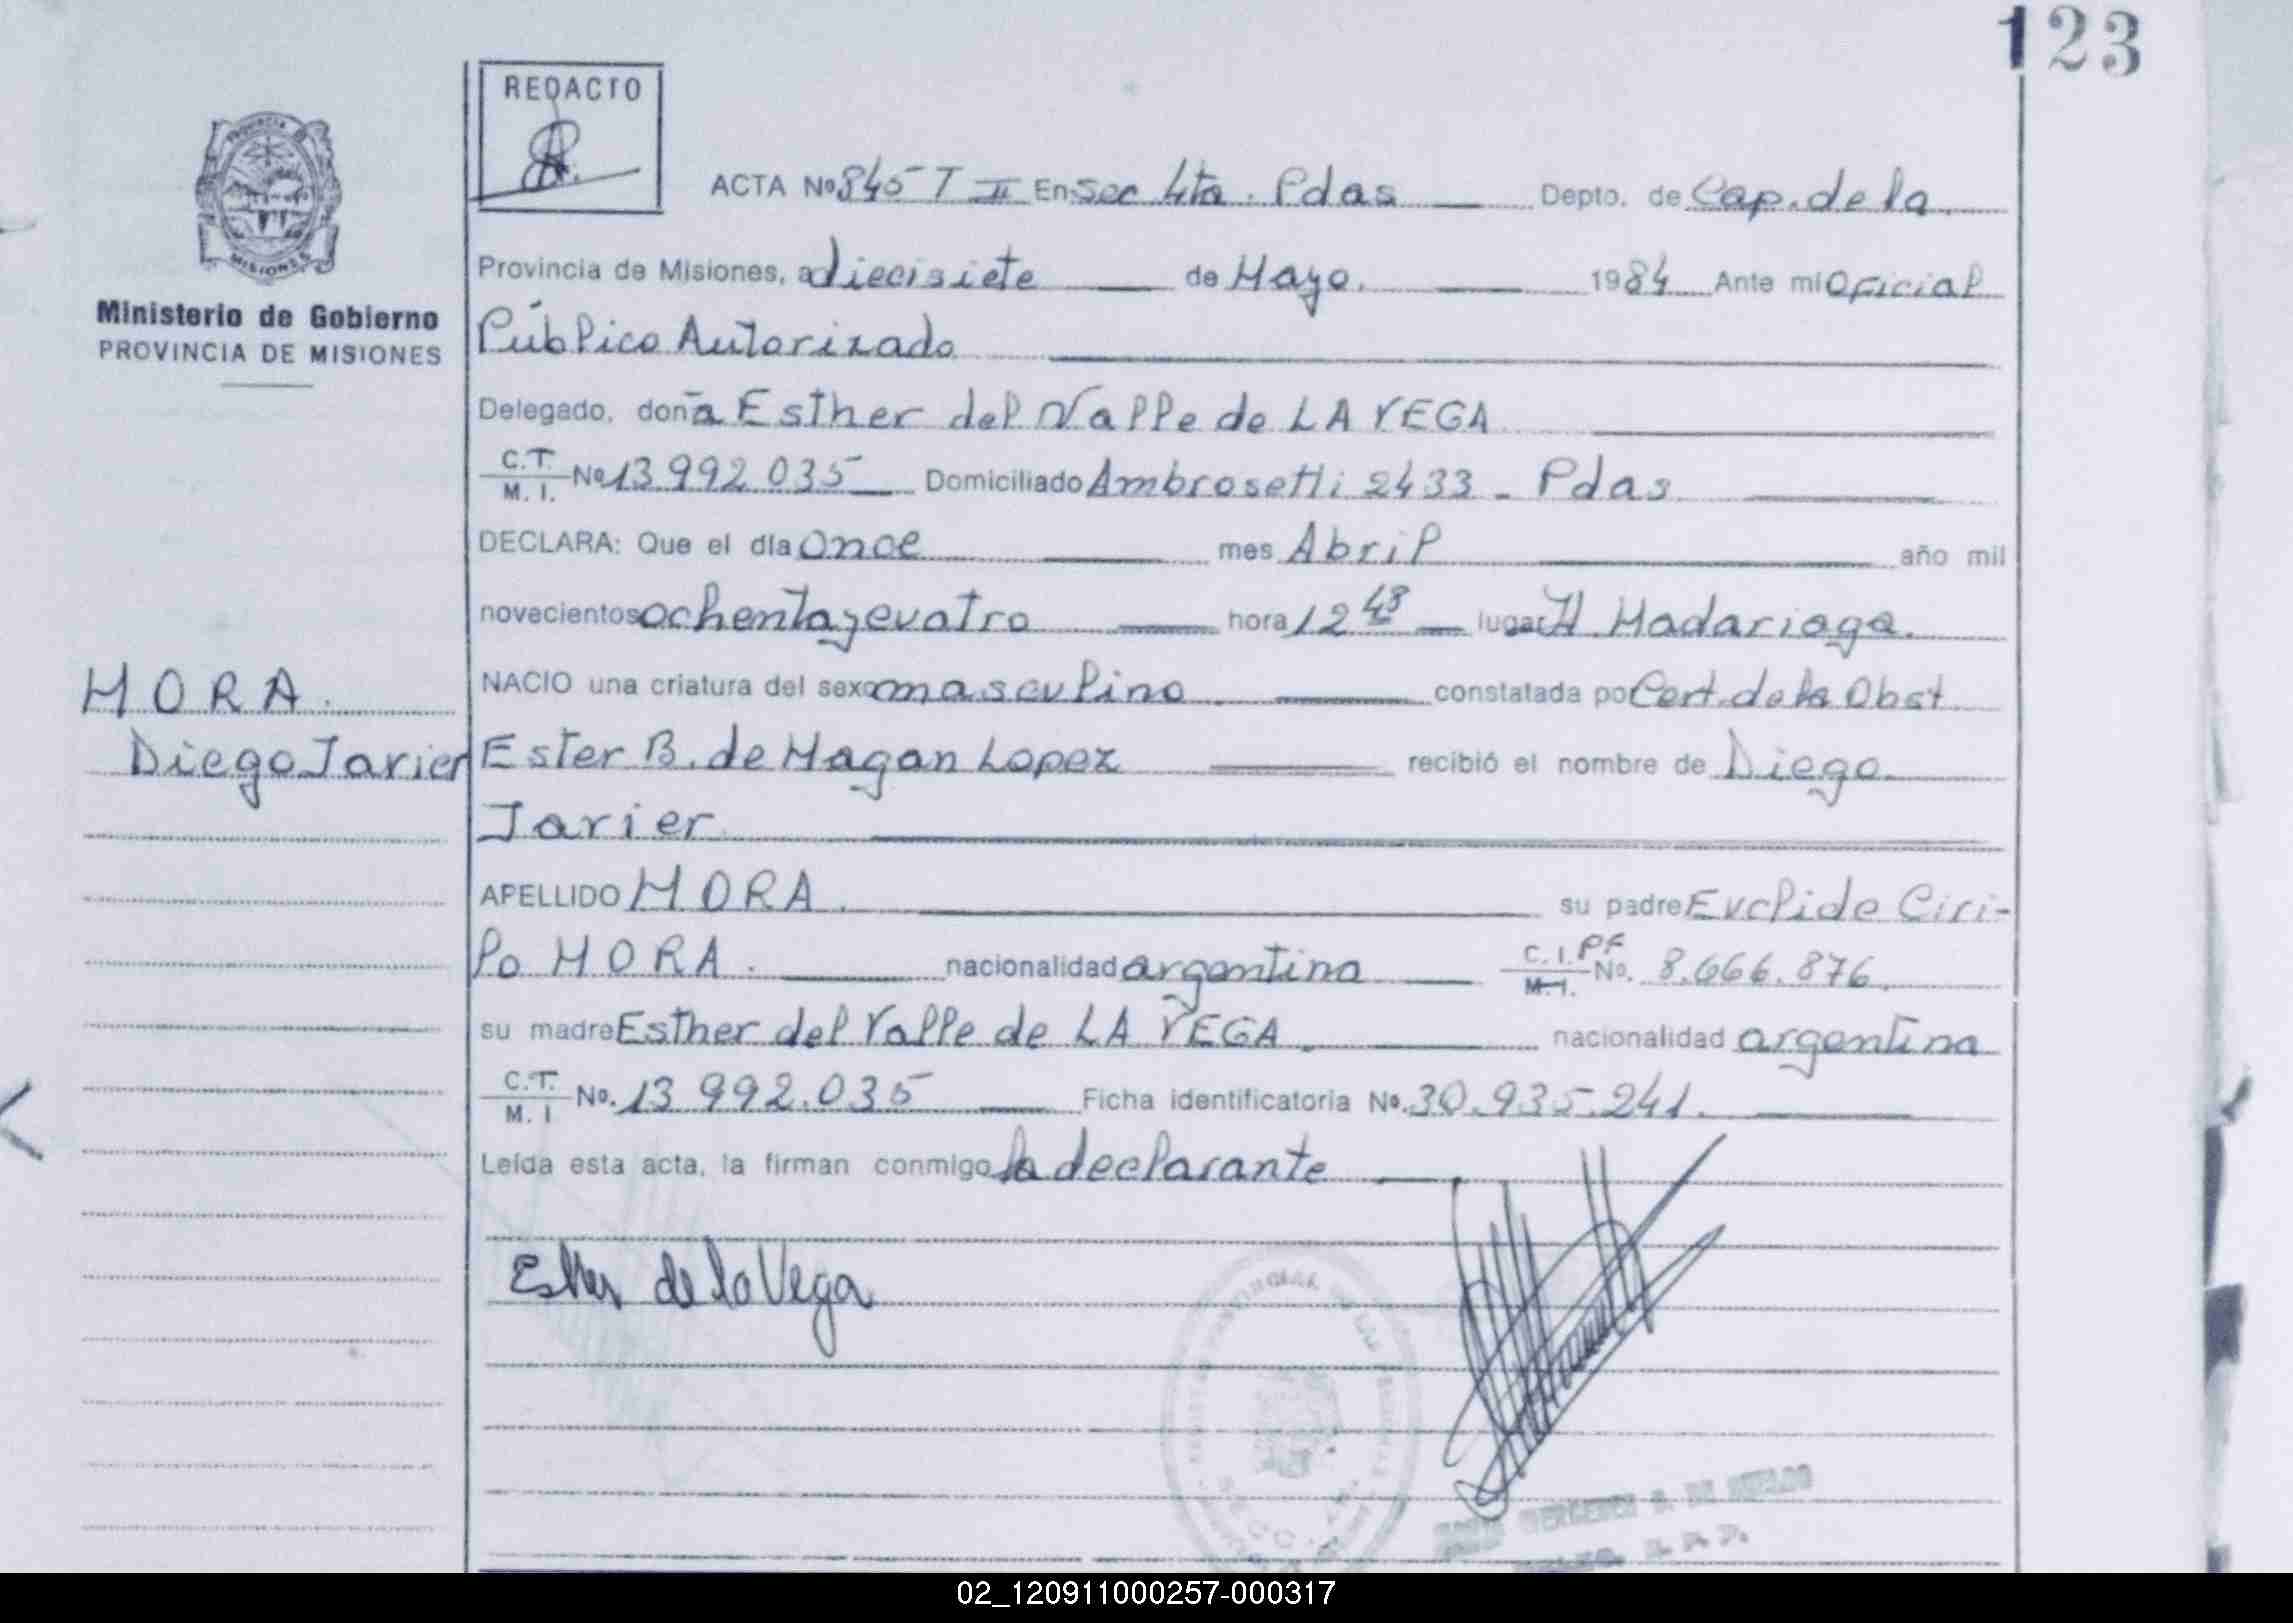 123
REDACTO
ACTA Nº 845 T II En Sec 4ta. Pdas Depto. de Cap. de la
Provincia de Misiones, a diecisiete de Mayo. 1984 Ante mí Oficial
Ministerio de Gobierno
PROVINCIA DE MISIONES
Público Autorizado
Delegado, doña Esther del Valle de LA VEGA
C.T.
M. I. Nº 13 992 035 Domiciliado Ambrosetti 2433 - Pdas
DECLARA: Que el día once mes Abril año mil
novecientos ochenta y cuatro hora 12 48 lugar H Madariaga.
MORA.
Diego Javier
NACIO una criatura del sexo masculino constatada po Cert. de la Obst
Ester B. de Magan Lopez recibió el nombre de Diego
Javier
APELLIDO MORA. su padre Euclide Ciri-
lo MORA. nacionalidad argentina C. I. PF
M. I. No. 8.666.876.
su madre Esther del Valle de LA VEGA. nacionalidad argentina
C.T.
M. I No. 13 992.035 Ficha identificatoria Nº. 30.935.241.
Leída esta acta, la firman conmigo la declarante
Esther de la Vega
02_120911000257-000317